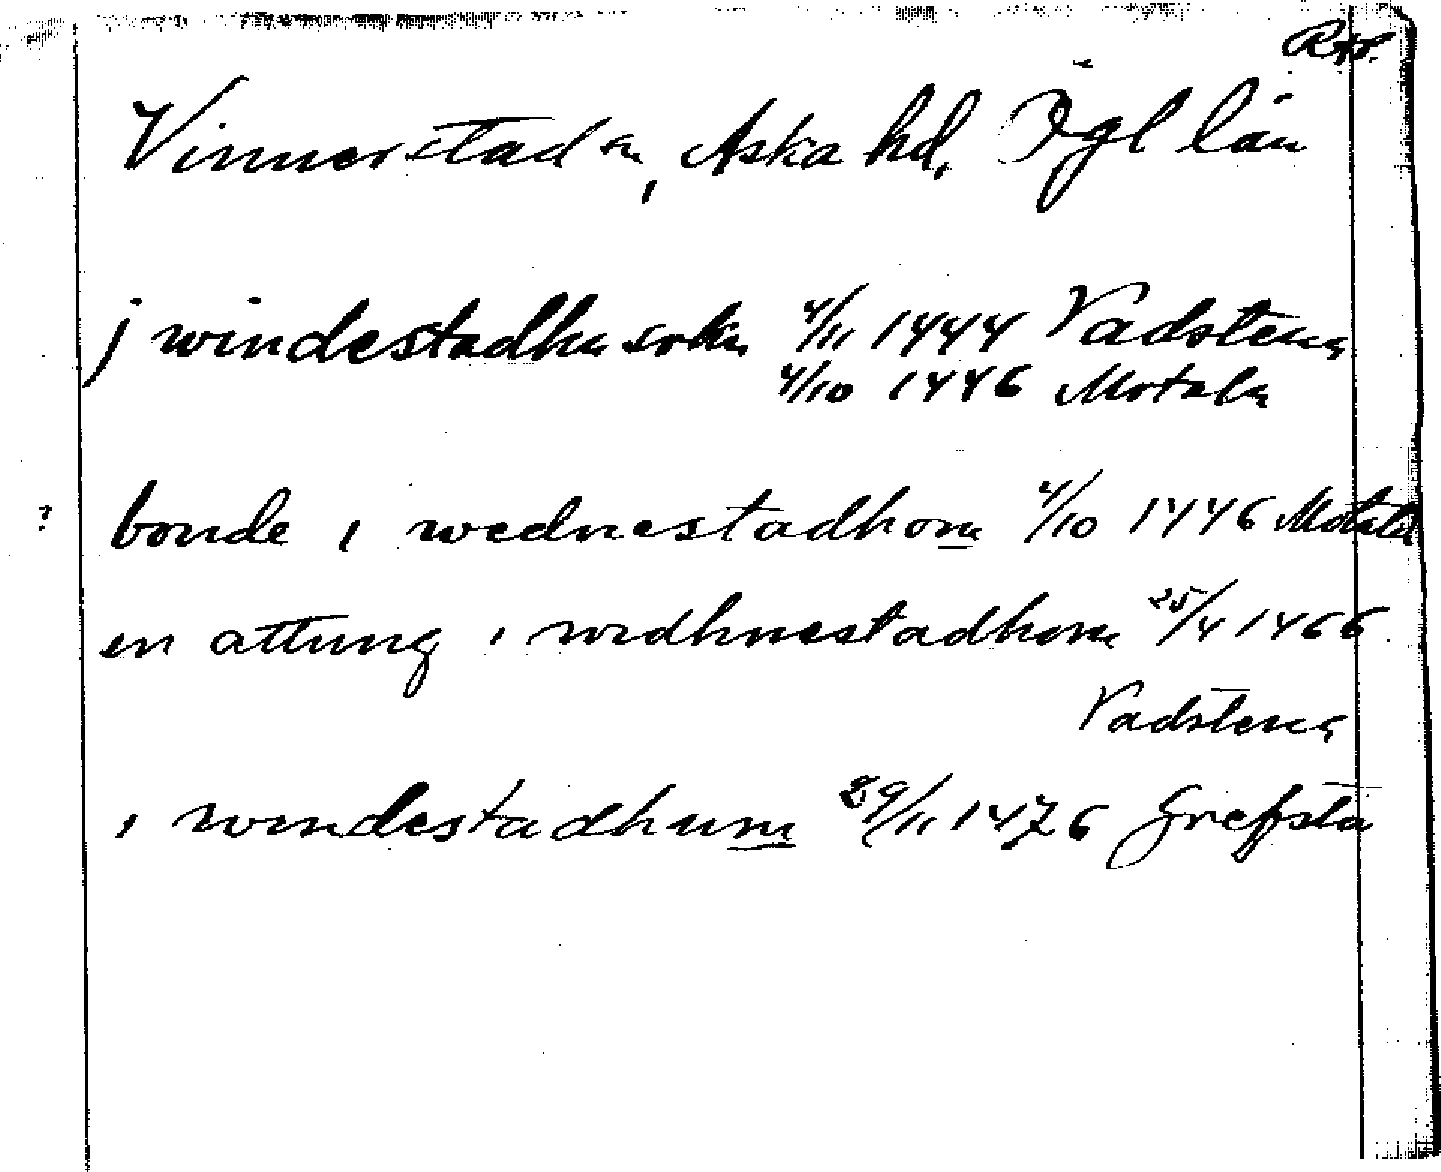 Rep.
Vinnerstad sn, Aska hd, Ögl län
j windestadha sokn 4/11 1444 Vadstena
4/10 1446 Motala
? bonde i wednestadhom 4/10 1446 Motala
en attung i widhnestadhom 25/4 1466
Vadstena
i windestadhum 29/11 1476 Grefsta